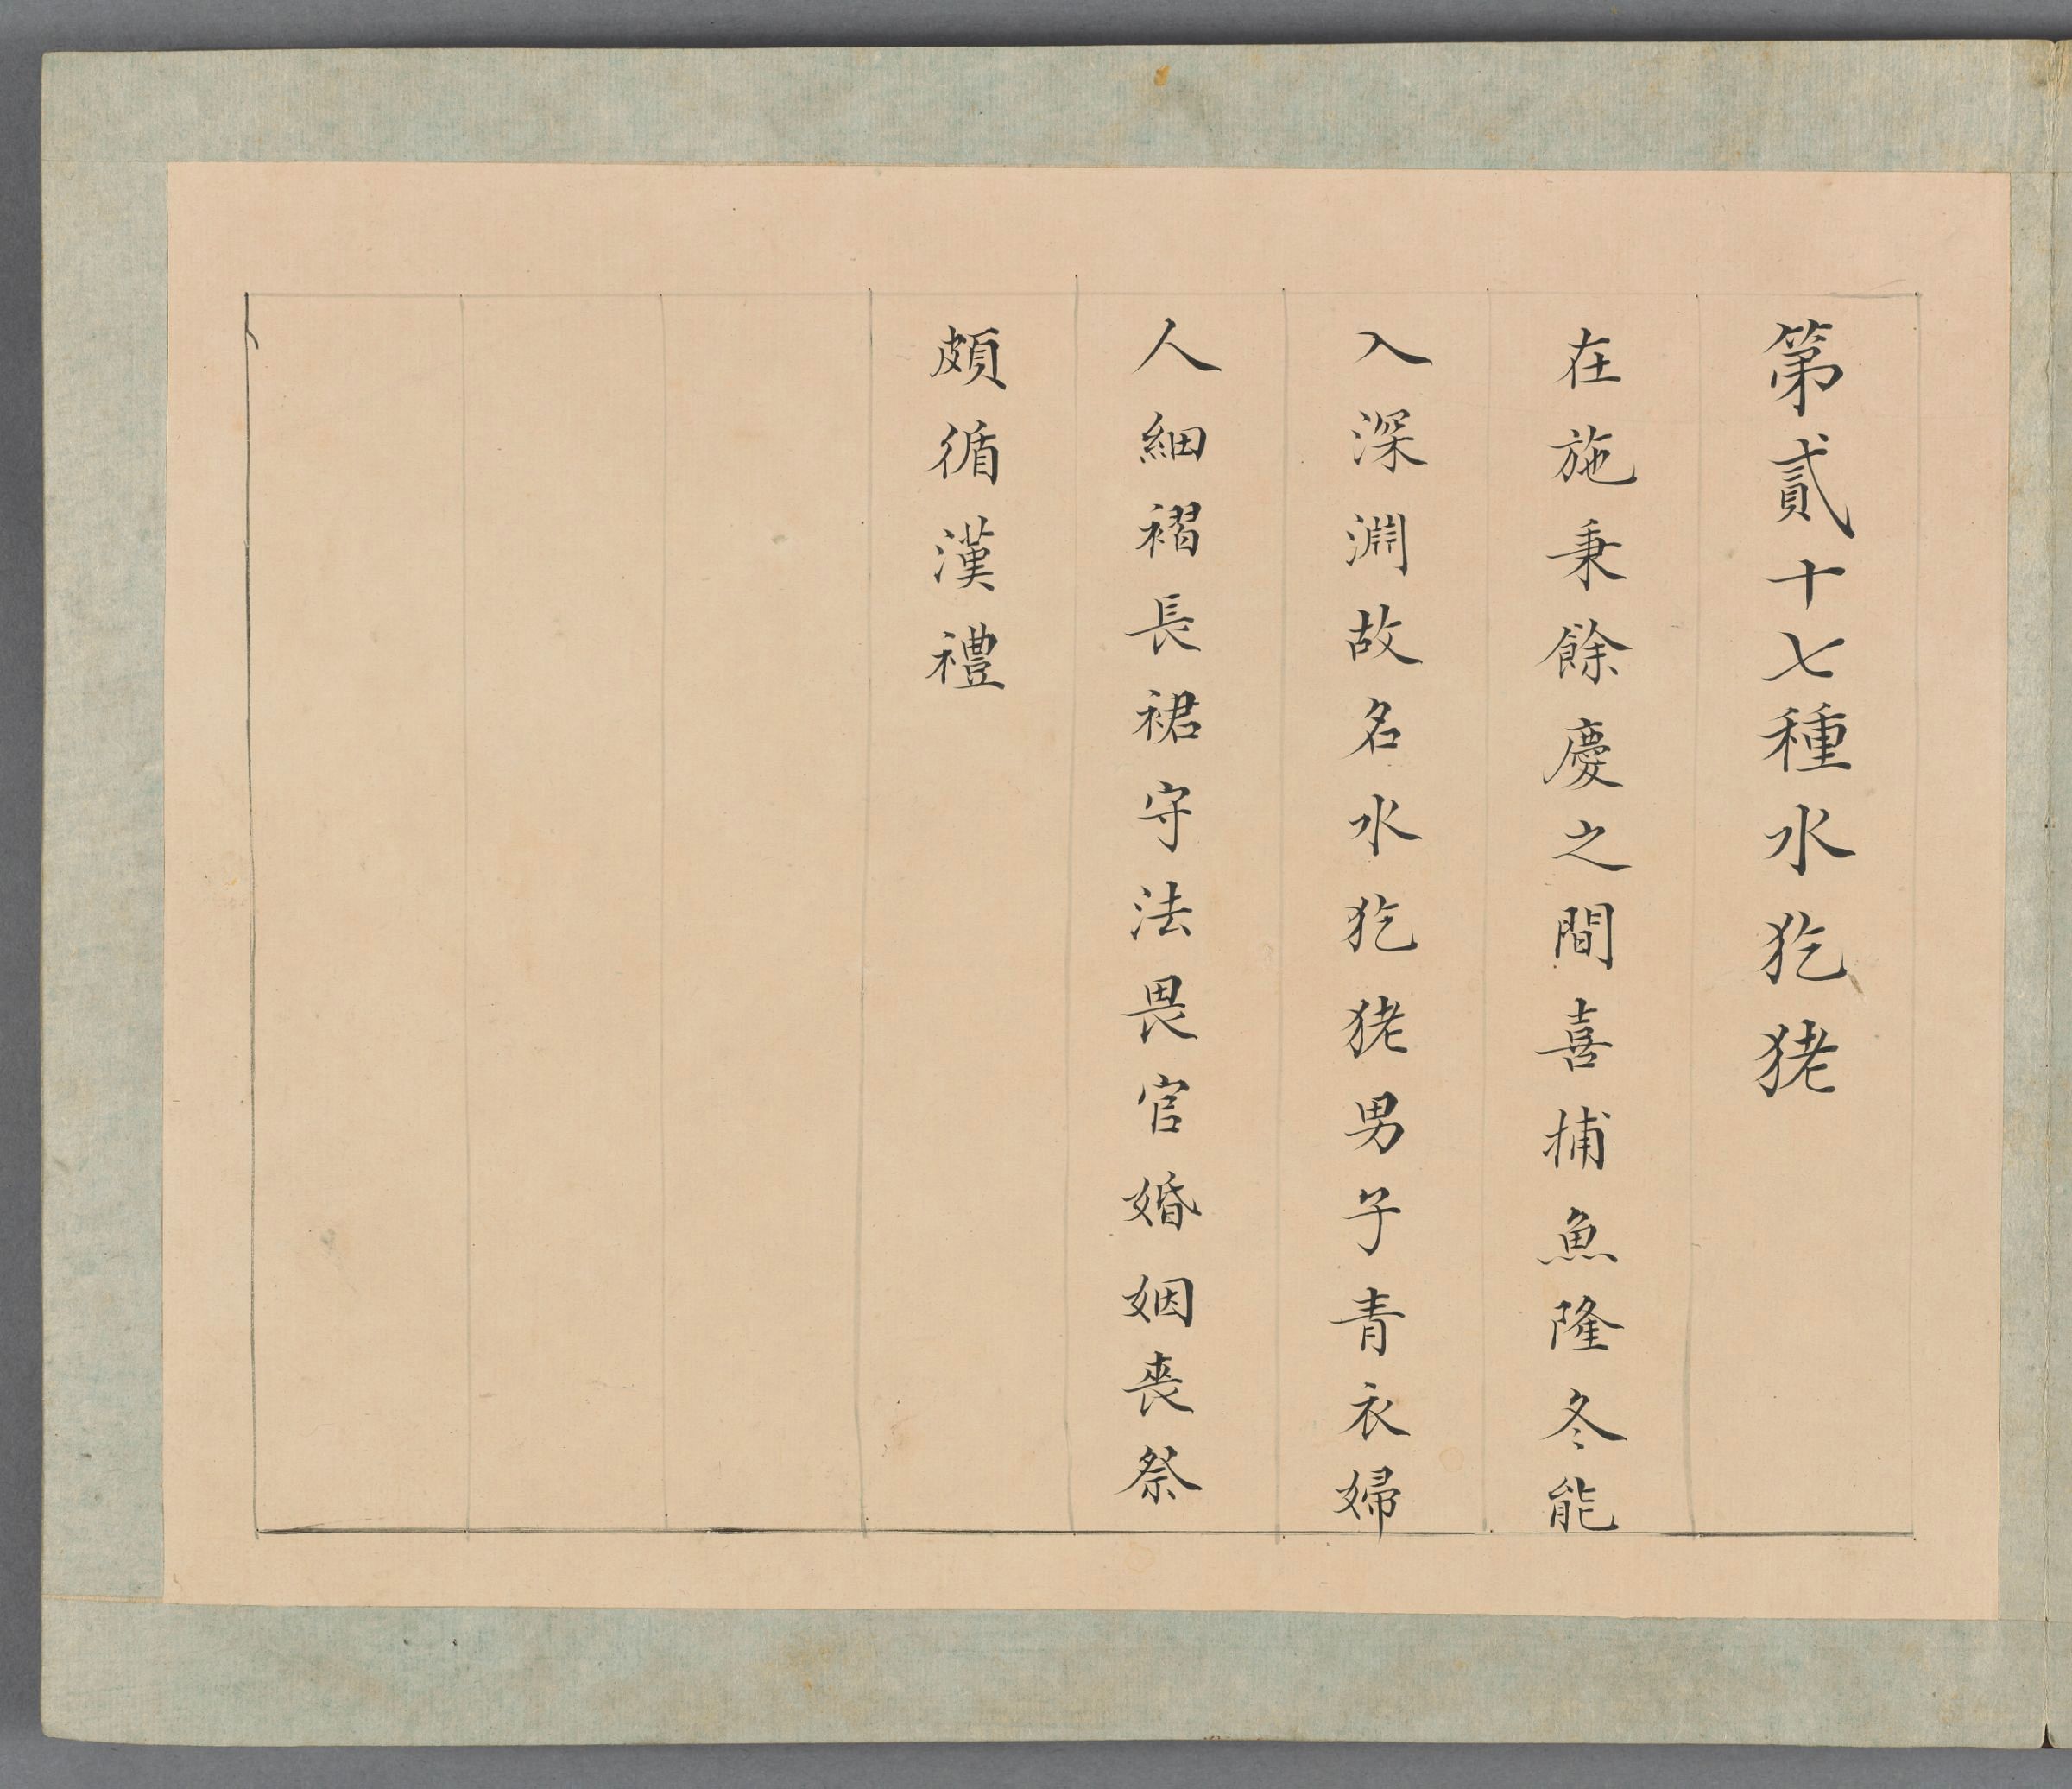 第貳十七種水犵狫
在施秉餘慶之間喜捕魚隆冬能
入深淵故名水犵狫男子青衣婦
人細褶長裙守法畏官婚姻喪祭
頗循漢禮